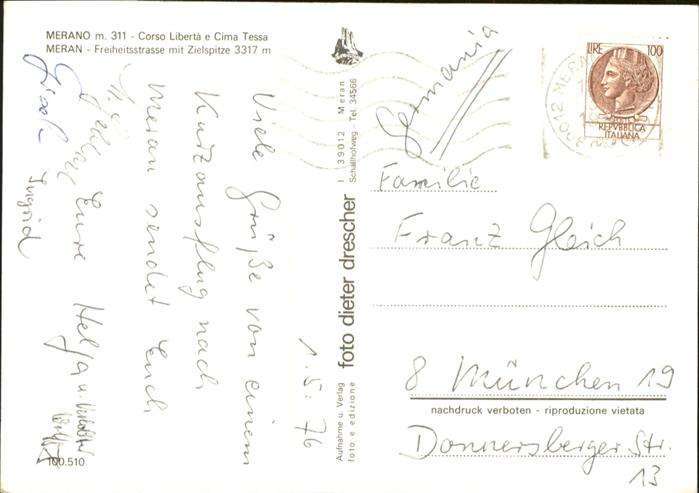 MERANO m. 311 - Corso Libertà e Cima Tessa
MERAN - Freiheitsstrasse mit Zielspitze 3317 m
1.5.76
Viele Grüße von einem
Kurzausflug nach
Meran sendet Euch
Eure Helga u.
Ingrid
100.510
Aufnahme u. Verlag
foto e edizione
foto dieter drescher
I 39012 Meran
Schallhofweg Tel 34566
Germania
LIRE 100
REPVBBLICA
ITALIANA
39012 MERANO
Familie
Franz Gleich
8 München 19
nachdruck verboten - riproduzione vietata
Donnersberger Str.
13